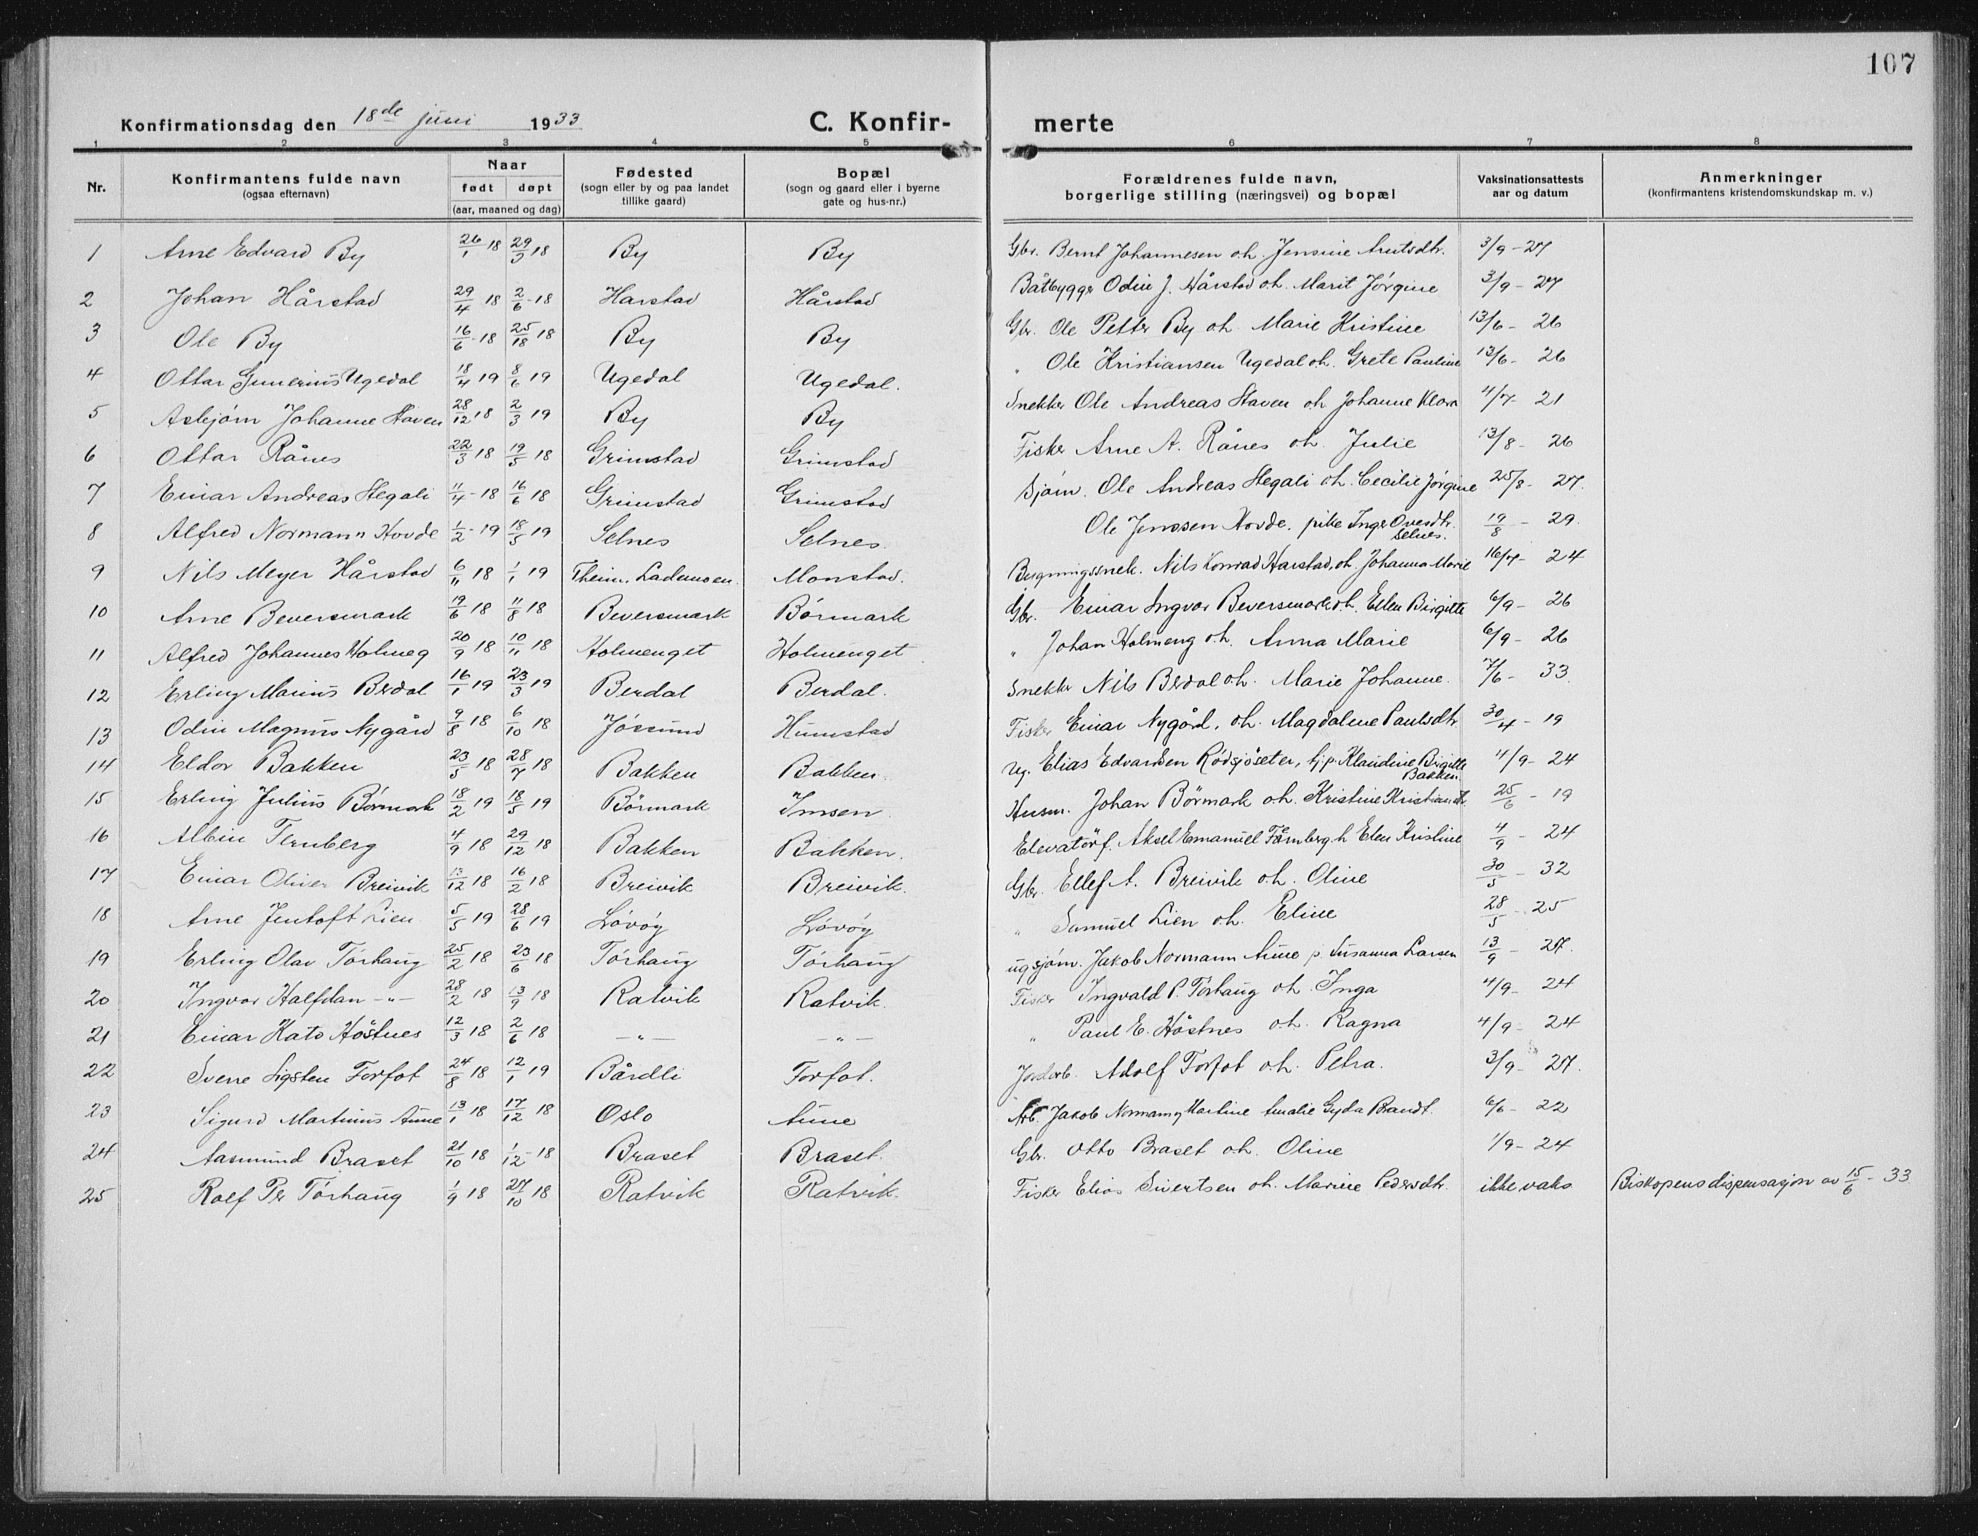 107
Konfirmationsdag den 18de juni 1933 C. Konfir- merte
1 2 3 4 5 6 7 8
Nr. Konfirmantens fulde navn (ogsaa efternavn) Naar født døpt (aar, maaned og dag) Fødested (sogn eller by og paa landet tillike gaard) Bopæl (sogn og gaard eller i byerne gate og hus-nr.) Forældrenes fulde navn, borgerlige stilling (næringsvei) og bopæl Vaksinationsattests aar og datum Anmerkninger (konfirmantens kristendomskundskap m. v.)
1 Arne Edvard By 26/1 18 29/3 18 By By Gbr. Bernt Johannesen oh. Jensine Arntsdtr. 3/9 - 27
2 Johan Hårstad 29/4 18 2/6 - 18 Harstad Hårstad Båtbygger Odin J. Hårstad oh. Marit Jørgine 3/9 - 27
3 Ole By 16/6 - 18 25/18 18 By By Gbr. Ole Petter By oh. Marie Kristine 13/6 - 26
4 Ottar Gunerius Ugedal 18/4 19 8/6 19 Ugedal Ugedal. " Ole Kristiansen Ugedal oh. Grete Pauline 13/6 - 26
5 Asbjørn Johanne Staven 28/12 18 2/3 19 By By Snekker Ole Andreas Staven oh Johanne Klara 4/7 - 21
6 Ottar Rånes 22/3 18 19/5 18 Grimstad Grimstad Fisker Arne A. Rånes oh. Julie 13/8 - 26
7 Einar Andreas Hegali 11/4 - 18 16/6 18 Grimstad Grimstad Sjøm. Ole Andreas Hegali oh. Cecilie Jørgine 25/8 - 27.
8 Alfred Normann Hovde 1/2 - 19 18/5 19 Selnes Selnes. Ole Jenssen Hovde. pike Inger Ovesdtr. Selnes. 19/8 - 29
9 Nils Meyer Hårstad 6/11 18 1/1 19 Theim. Lademoen. Monstad. Bygningssnek. Nils Konrad Harstad, oh. Johanna Marie 16/7 - 24
10 Arne Beversmark 19/6 18 11/8 18 Beversmark Børmark Gbr. Einar Ingvar Beversmark oh. Ellen Birgitte 6/9 - 26
11 Alfred Johannes Holmeg 20/9 18 10/11 18 Holmenget Holmenget " Johan Holmeng oh. Anna Marie 6/9 - 26
12 Erling Marius Berdal 16/1 19 23/3 19 Berdal Berdal. Snekker Nils Berdal oh. Marie Johanne. 7/6 - 33.
13 Odin Magnus Nygård 9/8 18 6/10 18 Jøssund Humstad Fisker Einar Nygård, oh. Magdalene Paulsdtr 30/4 - 19
14 Eldor Bakken 23/5 18 28/7 18 Bakken Bakken. Ug. Elias Edvardsen Rødsjøseter, hj.p. Klaudine Birgitte Bakken. 4/9 - 24
15 Erling Julius Børmark 18/2 19 18/5 19 Børmark Imsen Husm. Johan Børmark oh. Kristine Kristiansdtr. 25/6 - 19
16 Albin Ternberg 4/9 18 29/12 18 Bakken Bakken. Elevatørf. Aksel Emanuel Tårnberg h Elen Kristine 4/9 - 24
17 Einar Oliver Breivik 13/12 18 16/2 18 Breivik Breivik. Gbr. Ellef A. Breivik oh. Oline 30/5 - 32
18 Arne Jentoft Lien 5/5 19 28/6 19 Løvøy Løvøy " Samuel Lien oh. Eline 28/5 - 25
19 Erling Olav Tørhaug 25/2 18 23/6 18 Tørhaug Tørhaug ugsjøm. Jakob Normann Aune p. Susanna Larsen 13/9 - 27.
20 Ingvar Halfdan -"- 28/2 18 13/9 18 Ratvik Ratvik. Fisker Ingvald P. Tørhaug oh. Inga 4/9 - 24
21 Einar Kato Høstnes 12/3 18 2/6 18 -"- -"- " Paul E. Høstnes oh. Ragna 4/9 - 24
22 Sverre Sigsten Forfot 24/8 18 12/1 19 Bårdli Forfot. Jordarb. Adolf Forfot oh. Petra. 3/9 - 27.
23 Sigurd Martinus Aune 13/1 18 17/12 18 Oslo Aune Arb. Jakob Norman og Martine Amalie Gyda Brandt. 6/6 - 22
24 Aasmund Braset 21/10 18 1/12 - 18 Braset Braset. Gbr. Otto Braset oh. Oline 1/9 - 24
25 Rolf Per Tørhaug 1/9 18 27/10 18 Ratvik Ratvik. Fisker Elias Sivertsen oh. Marine Pedersdtr. ikke vaks Biskopens dispensasjon av 15/6 - 33